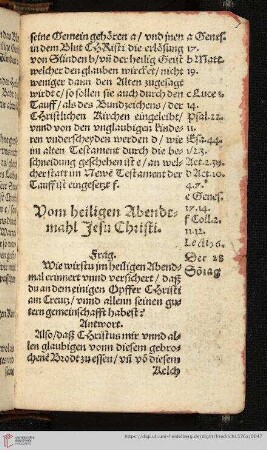 seine Gemein gehören a/ vnd jnen
in dem Blut CHRisti die erlösung
von Sünden b/ vñ der heilig Geist
welcher den glauben wircket/ nicht
weniger dann den Alten zugesagt
wirdt/ so sollen sie auch durch den
Tauff/ als des Bundzeichens/ der
CHristlichen Kirchen eingeleibt/
vnnd von den vnglaubigen kindes
ren vnderscheyden werden d/ wie
im alten Testament durch die bes
schneidung geschehen ist e/ an wels
cher statt im Newe Testament der
Tauff ist eingesetzt f.
a Genes.
17.
b Matt.
19.
c Luce 1.
14.
Psal. 22.
11.
Esa. 44.
1. 2. 3.
Act. 2. 39.
d Act. 10.
4. 7.
e Genes.
17. 14.
f Coll. 2.
11. 12.
Vom heiligen Abendt-
mahl Jesu Christi.
Der 28
Sötag
Frag.
Wie wirstu im heiligen Abend-
mal erinnert vnnd versichert/ daß
du an dem einigen Opffer CHristi
am Creutz/ vnnd allenn seinen gü-
tern gemeinschafft habest?
Antwort.
Also/ daß CHristus mir vnnd al-
len glaubigen vonn diesem gebro-
chenē Brodt zu essen/ vñ vō diesem
Kelch
https://digi.ub.uni-heidelberg.de/diglit/